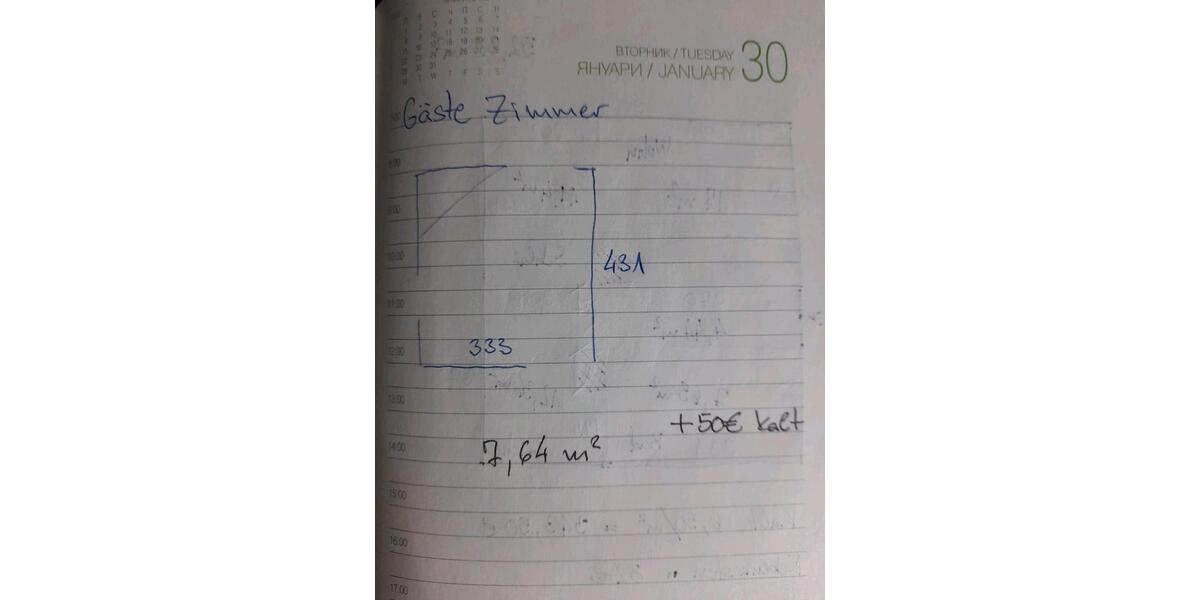 ВТОРНИК / TUESDAY
ЯНУАРИ / JANUARY 30
Gäste Zimmer
8:00
9:00
10:00
431
11:00
12:00
333
13:00
+50€ kalt
14:00
7,64 m²
15:00
16:00
17:00